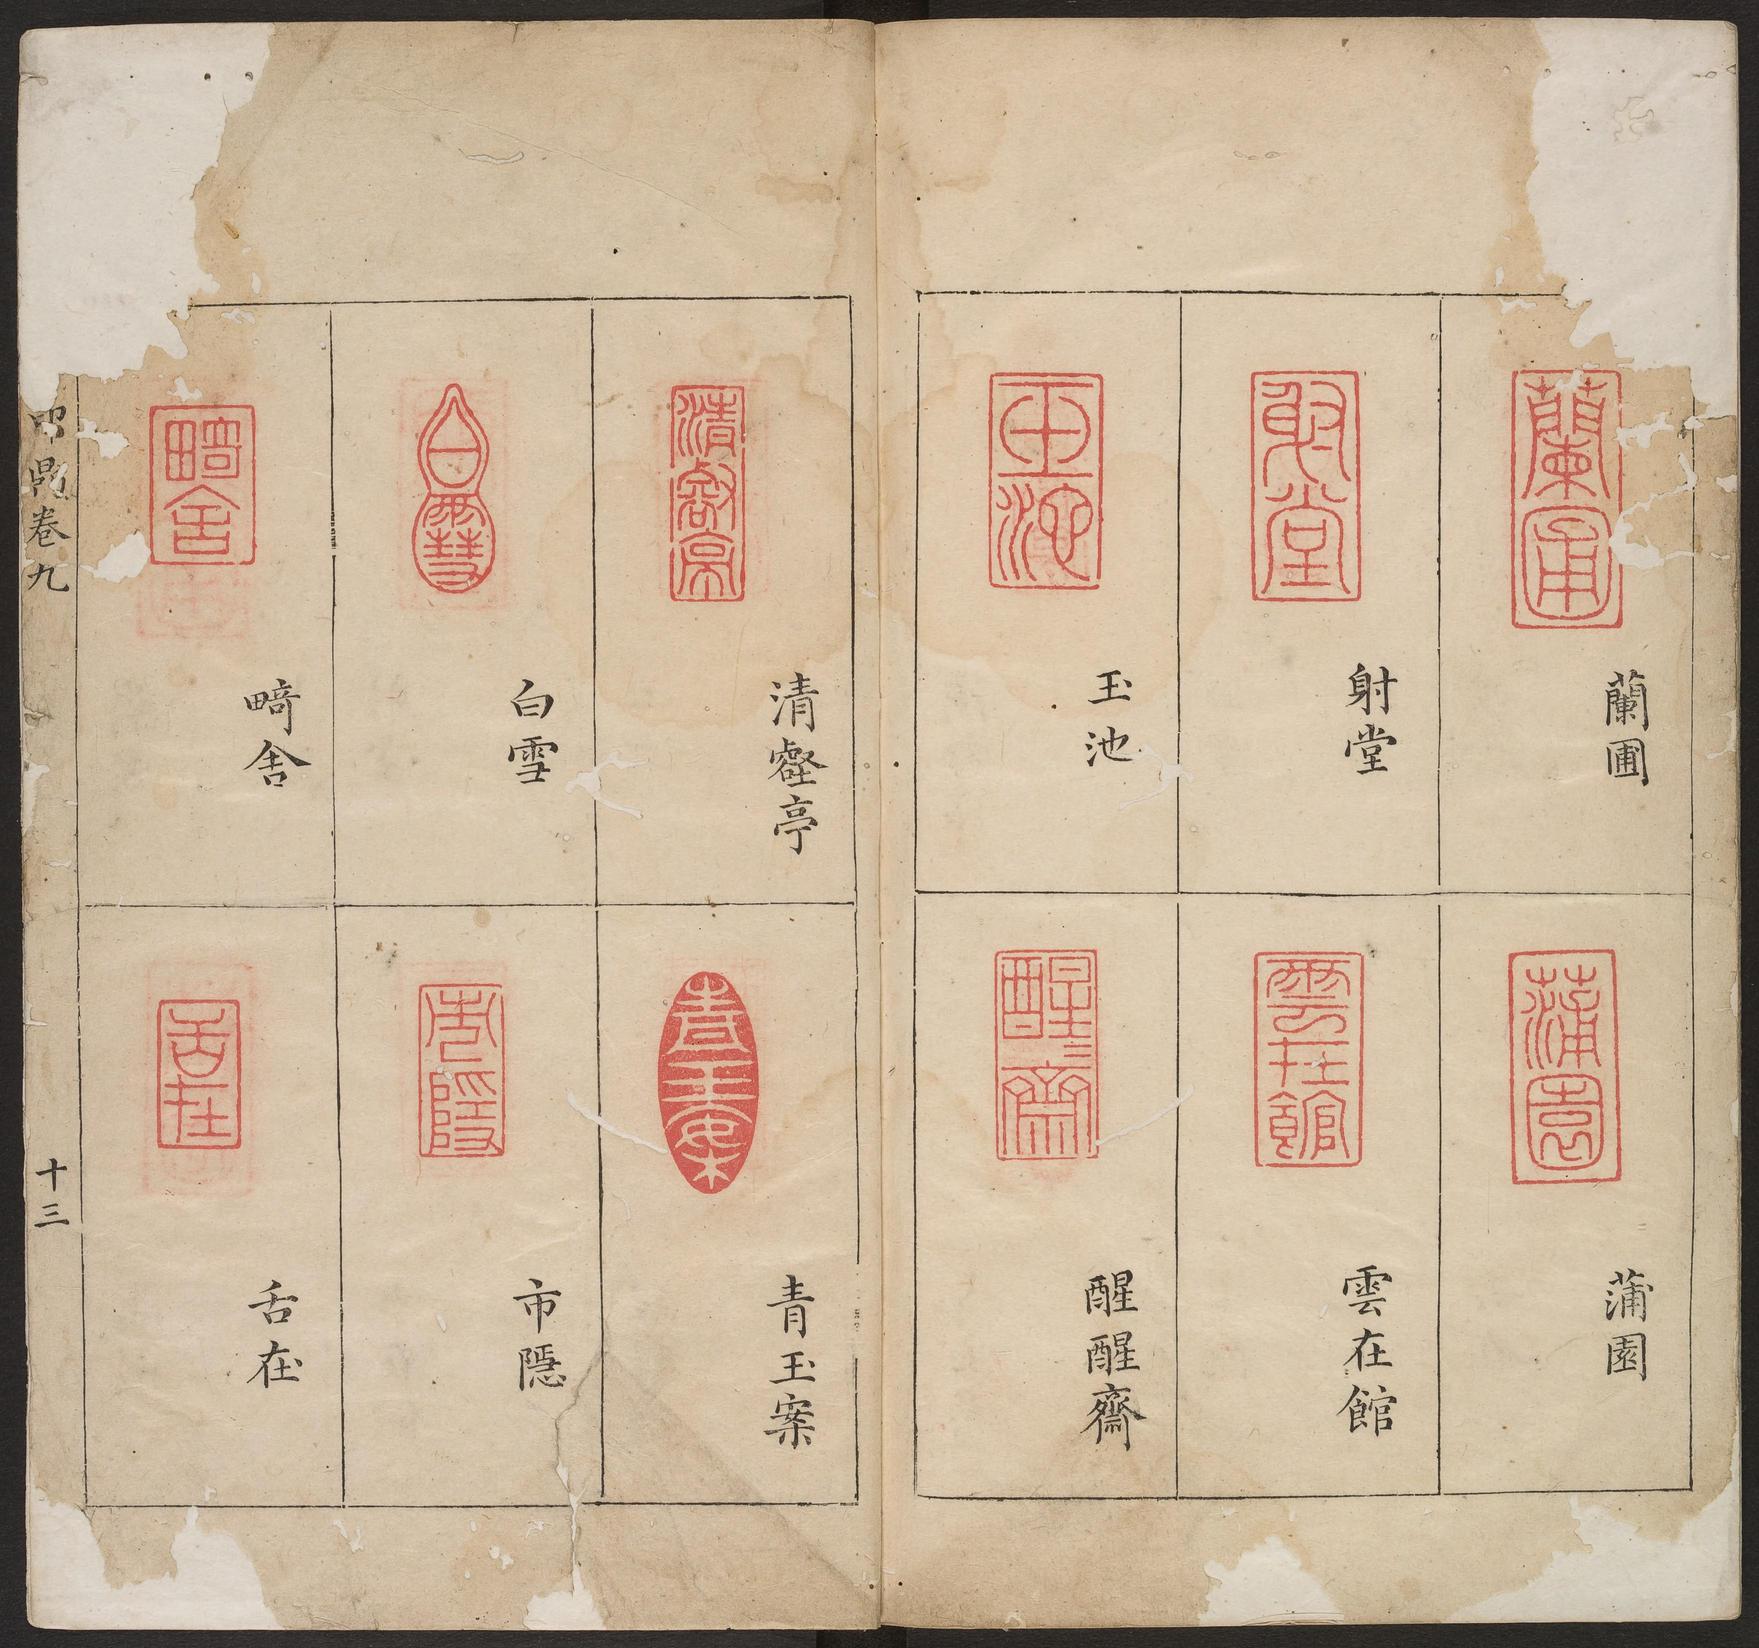 蘭圃
射堂
玉池
蒲園
雲在館
醒醒齋
清壑亭
白雪
畸舍
青玉案
市隱
舌在
印鼎卷九
十三